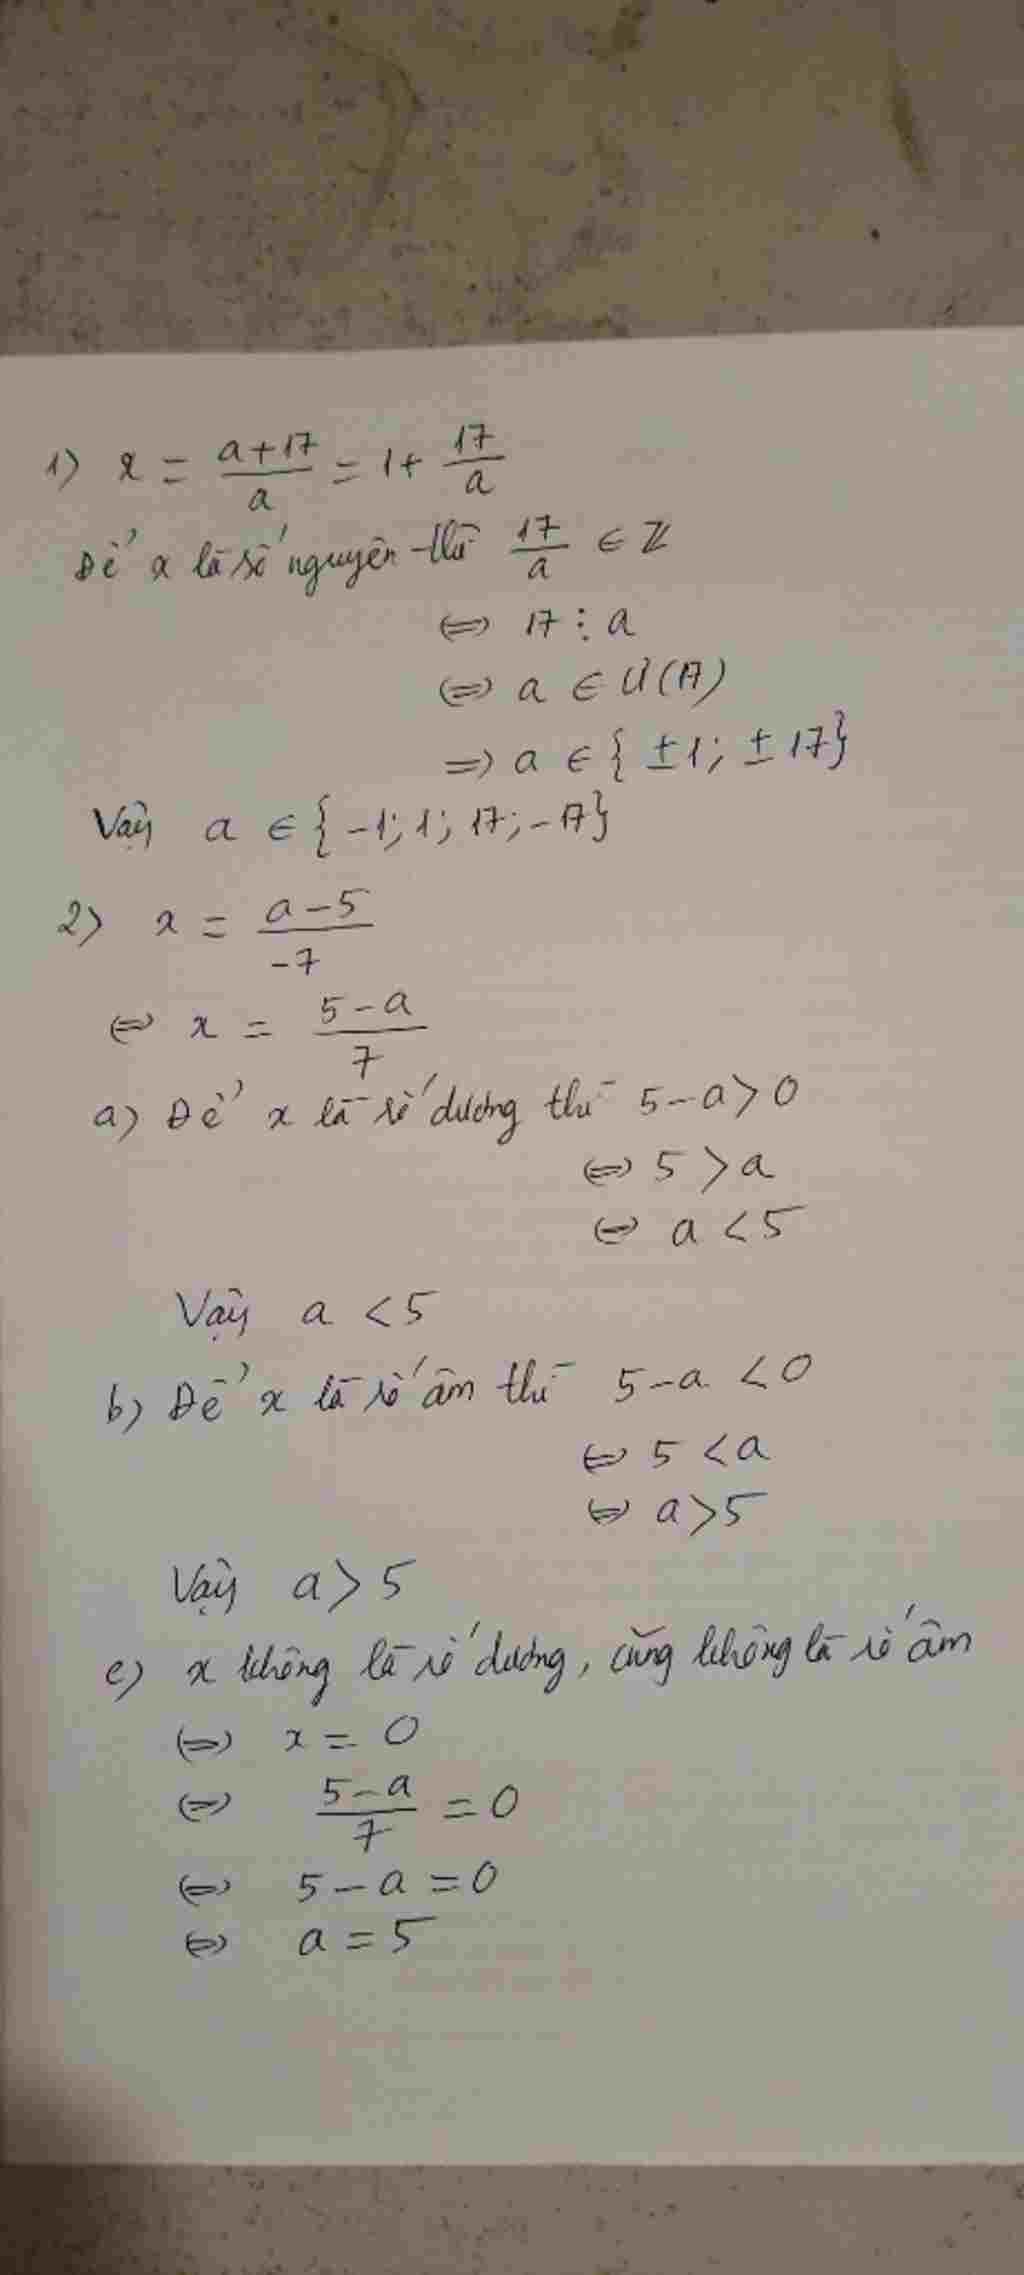 1) x = \frac{a+17}{a} = 1 + \frac{17}{a}
Để x là số nguyên thì \frac{17}{a} ∈ Z
⇔ 17 ⋮ a
⇔ a ∈ Ư(17)
⇒ a ∈ { ±1; ±17}
Vậy a ∈ {-1; 1; 17; -17}
2) x = \frac{a-5}{-7}
⇔ x = \frac{5-a}{7}
a) Để x là số dương thì 5-a > 0
⇔ 5 > a
⇔ a < 5
Vậy a < 5
b) Để x là số âm thì 5-a < 0
⇔ 5 < a
⇔ a > 5
Vậy a > 5
c) x không là số dương, cũng không là số âm
⇔ x = 0
⇔ \frac{5-a}{7} = 0
⇔ 5-a = 0
⇔ a = 5